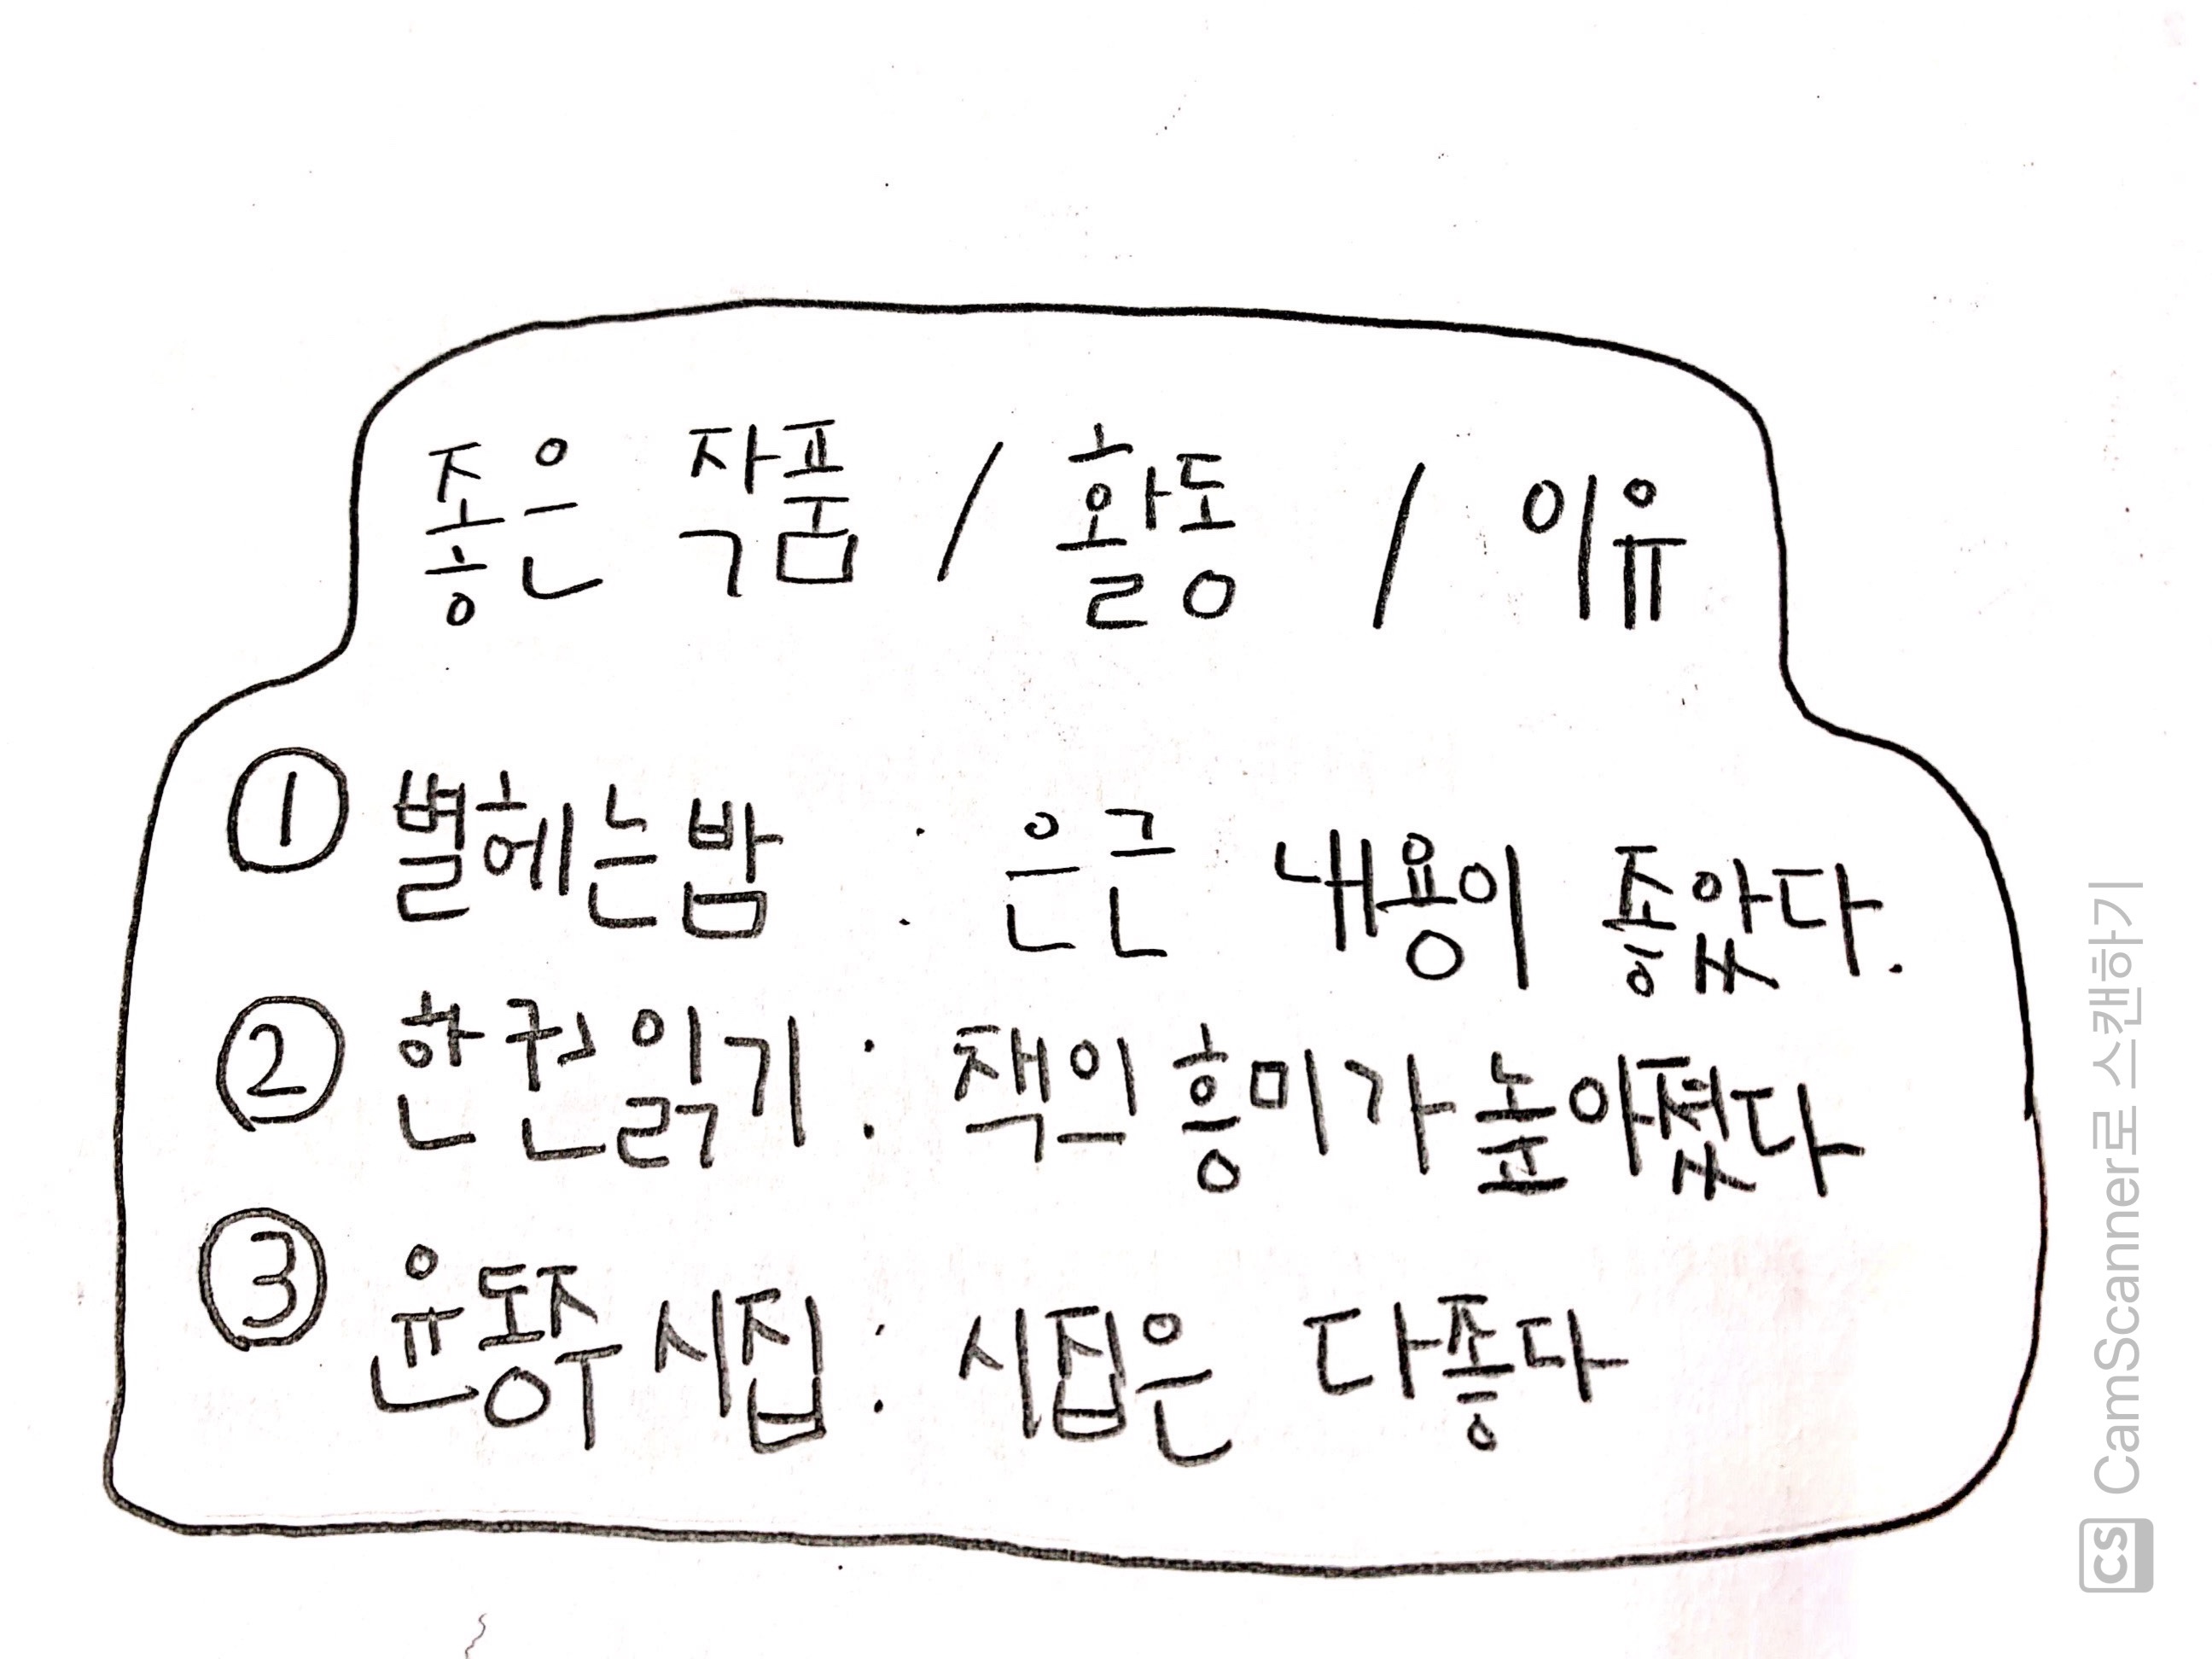 좋은 작품 / 활동 / 이유
① 별헤는밤 : 은근 내용이 좋았다.
② 한권읽기 : 책의 흥미가 높아졌다
③ 윤동주 시집 : 시집은 다좋다
CS CamScanner로 스캔하기